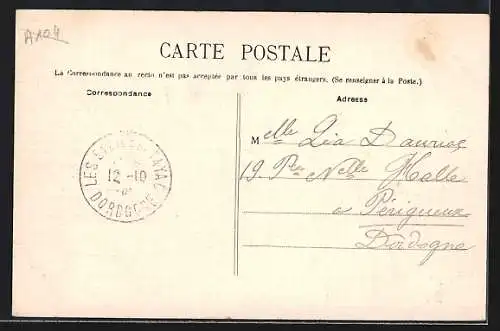 A104
CARTE POSTALE
La Correspondance au recto n'est pas acceptée par tous les pays étrangers. (Se renseigner à la Poste.)
Correspondance
Adresse
Melle Lia Dauriac
19. Pce Nelle Halle
a Périgueux
Dordogne
LES EYZIES-TAYAC
12-10
DORDOGNE